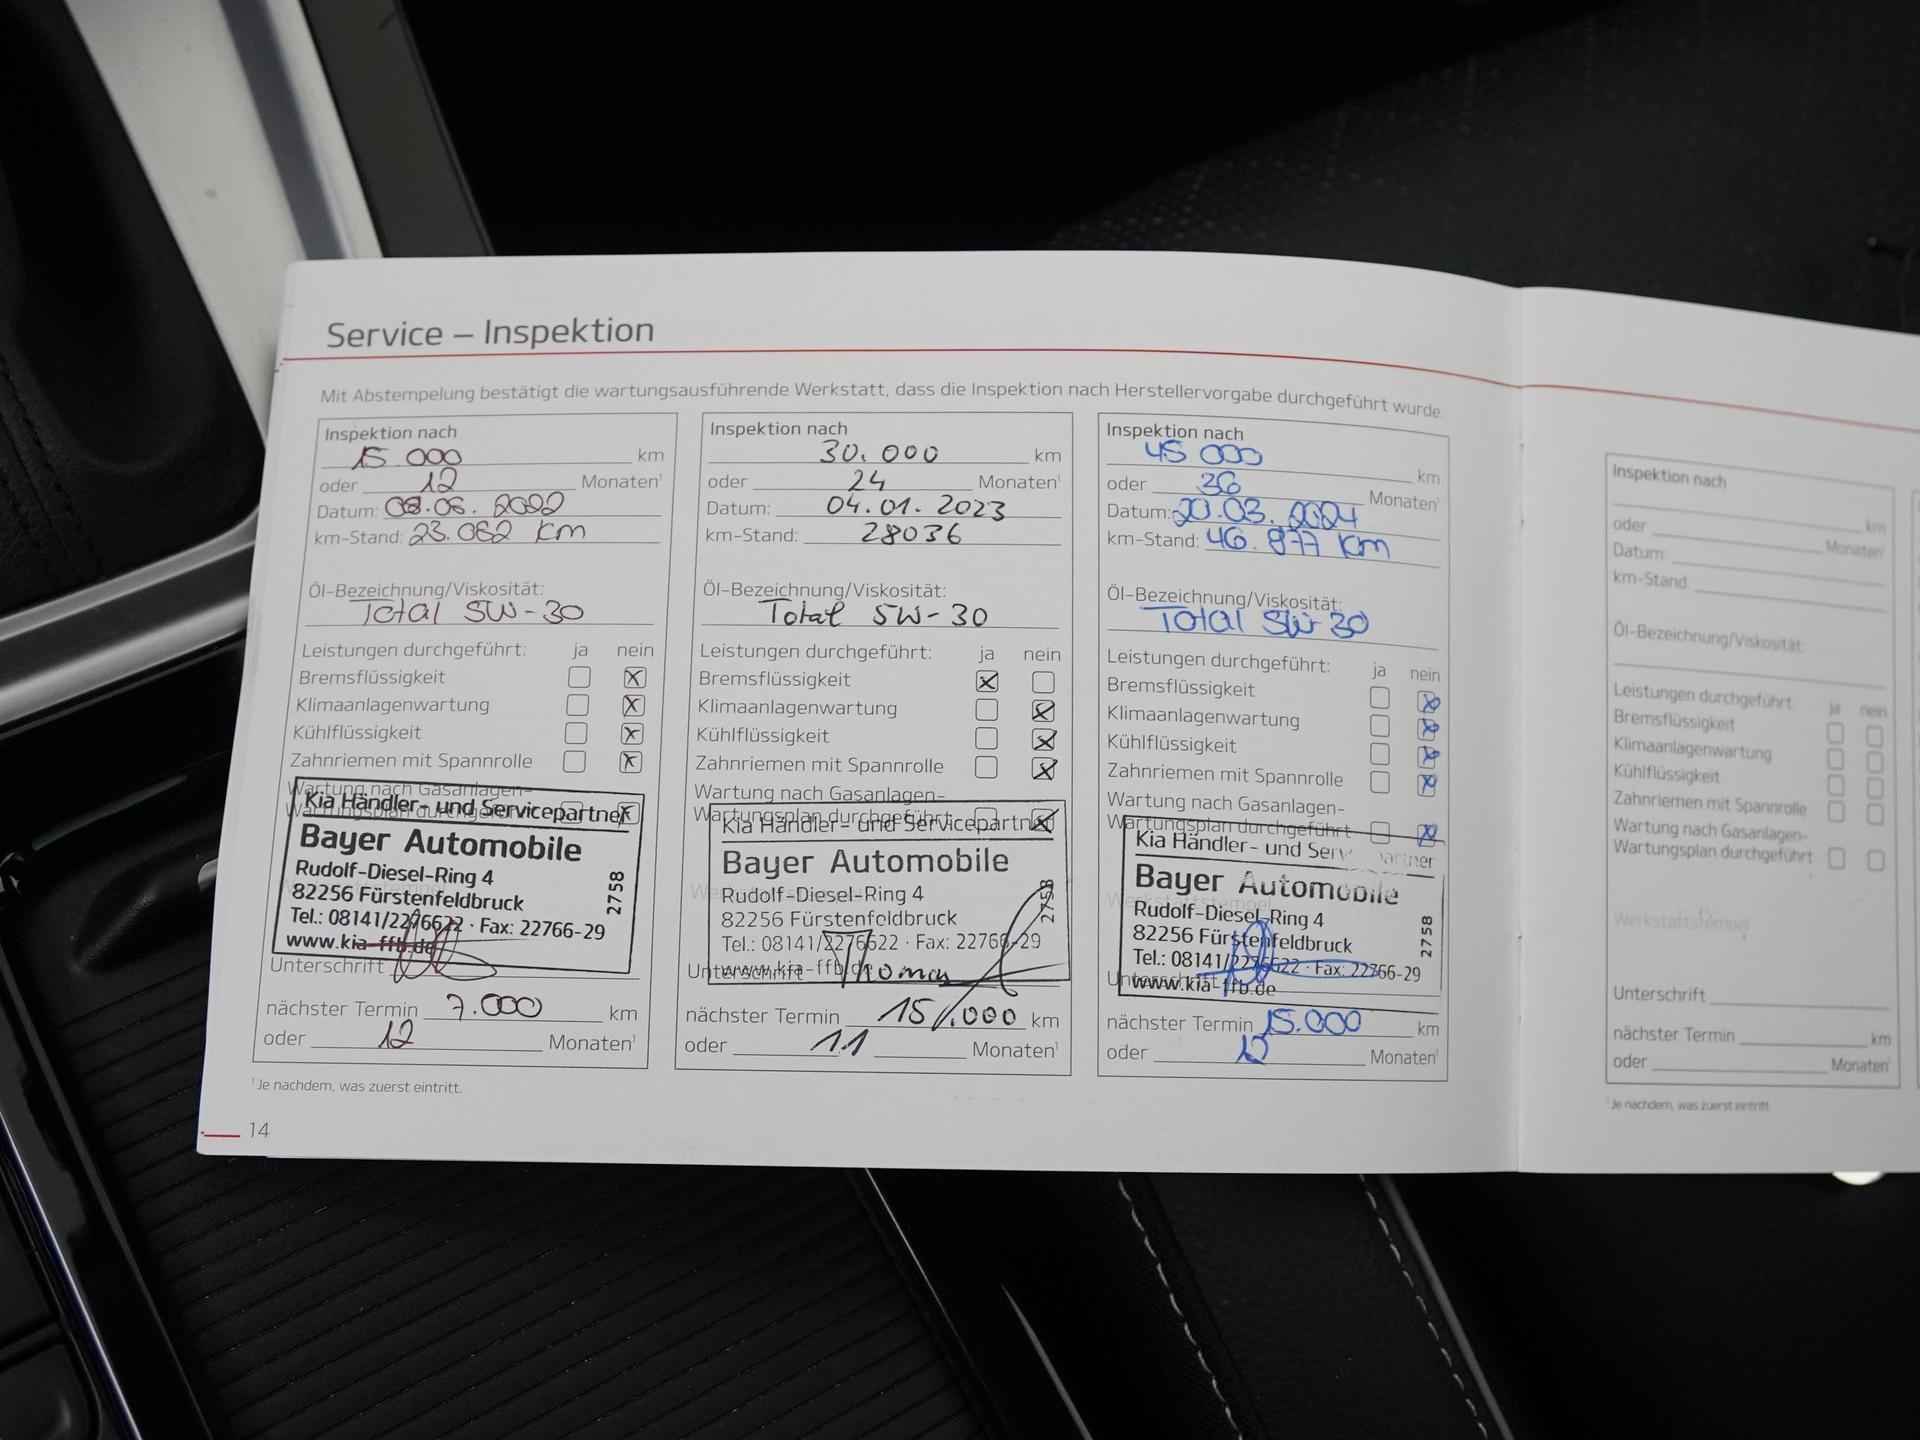 Service – Inspektion
Mit Abstempelung bestätigt die wartungsausführende Werkstatt, dass die Inspektion nach Herstellervorgabe durchgeführt wurde.
Inspektion nach
15 000 km
oder 12 Monaten¹
Datum: 08.06. 2022
km-Stand: 23.062 km
Öl-Bezeichnung/Viskosität:
Total 5W-30
Leistungen durchgeführt: ja nein
Bremsflüssigkeit x
Klimaanlagenwartung x
Kühlflüssigkeit x
Zahnriemen mit Spannrolle x
Wartung nach Gasanlagen-
Wartungsplan durchgeführt x
Kia Händler- und Servicepartner
Bayer Automobile
Rudolf-Diesel-Ring 4
82256 Fürstenfeldbruck
Tel.: 08141/2276622 · Fax: 22766-29
www.kia-ffb.de
2758
Unterschrift
nächster Termin 7.000 km
oder 12 Monaten¹
Inspektion nach
30.000 km
oder 24 Monaten¹
Datum: 04.01.2023
km-Stand: 28036
Öl-Bezeichnung/Viskosität:
Total 5W-30
Leistungen durchgeführt: ja nein
Bremsflüssigkeit x
Klimaanlagenwartung x
Kühlflüssigkeit x
Zahnriemen mit Spannrolle x
Wartung nach Gasanlagen-
Wartungsplan durchgeführt x
Kia Händler- und Servicepartner
Bayer Automobile
Rudolf-Diesel-Ring 4
82256 Fürstenfeldbruck
Tel.: 08141/2276622 · Fax: 22766-29
www.kia-ffb.de
2758
Unterschrift
nächster Termin 15.000 km
oder 11 Monaten¹
Inspektion nach
45 000 km
oder 36 Monaten¹
Datum: 20.03. 2024
km-Stand: 46.877 km
Öl-Bezeichnung/Viskosität:
Total 5W-30
Leistungen durchgeführt: ja nein
Bremsflüssigkeit x
Klimaanlagenwartung x
Kühlflüssigkeit x
Zahnriemen mit Spannrolle x
Wartung nach Gasanlagen-
Wartungsplan durchgeführt x
Werkstattstempel
Kia Händler- und Servicepartner
Bayer Automobile
Rudolf-Diesel-Ring 4
82256 Fürstenfeldbruck
Tel.: 08141/2276622 · Fax: 22766-29
www.kia-ffb.de
2758
Unterschrift
nächster Termin 15.000 km
oder 12 Monaten¹
¹ Je nachdem, was zuerst eintritt.
14
Inspektion nach
km
oder Monaten¹
Datum:
km-Stand:
Öl-Bezeichnung/Viskosität:
Leistungen durchgeführt: ja nein
Bremsflüssigkeit
Klimaanlagenwartung
Kühlflüssigkeit
Zahnriemen mit Spannrolle
Wartung nach Gasanlagen-
Wartungsplan durchgeführt
Werkstattstempel
Unterschrift
nächster Termin km
oder Monaten¹
¹ Je nachdem, was zuerst eintritt.